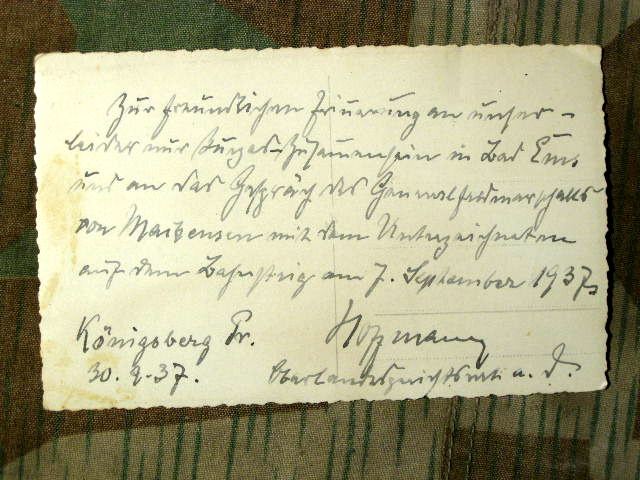 Zur freundlichen Erinnerung an unser -
leider nur kurzes - Zusammensein in Bad Ems
und an das Gespräch des Generalfeldmarschalls
von Mackensen mit dem Unterzeichneten
auf dem Bahnsteig am 7. September 1937.
Königsberg Pr.
30.9.37.
Hoffmann
Oberlandesgerichtsrat a. D.